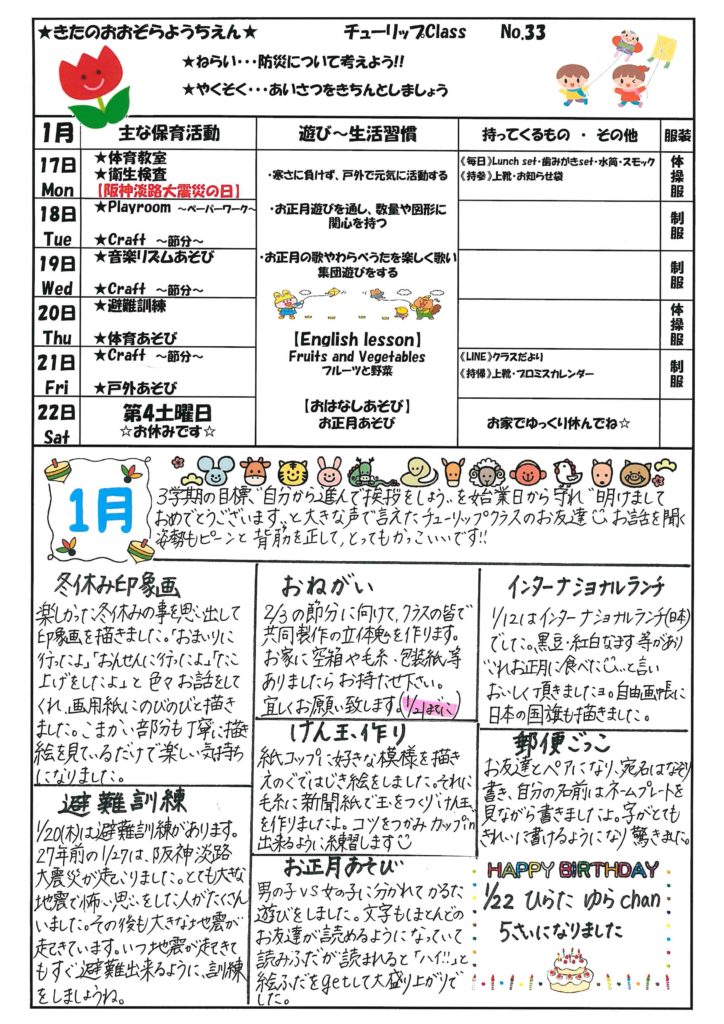 ★きたのおおぞらようちえん★ チューリップClass No.33
★ねらい・・・防災について考えよう!!
★やくそく・・・あいさつをきちんとしましょう
1月 主な保育活動 遊び～生活習慣 持ってくるもの ・ その他 服装
17日 Mon
★体育教室
★衛生検査
【阪神淡路大震災の日】
《毎日》Lunch set・歯みがきset・水筒・スモック
《持参》上靴・お知らせ袋
体操服
18日 Tue
★Playroom ～ペーパーワーク～
★Craft ～節分～
制服
19日 Wed
★音楽リズムあそび
★Craft ～節分～
制服
20日 Thu
★避難訓練
★体育あそび
体操服
21日 Fri
★Craft ～節分～
★戸外あそび
《LINE》クラスだより
《持帰》上靴・プロミスカレンダー
制服
22日 Sat
第4土曜日
☆お休みです☆
お家でゆっくり休んでね☆
・寒さに負けず、戸外で元気に活動する
・お正月遊びを通し、数量や図形に
関心を持つ
・お正月の歌やわらべうたを楽しく歌い
集団遊びをする
【English lesson】
Fruits and Vegetables
フルーツと野菜
【おはなしあそび】
お正月あそび
1月
3学期の目標゛自分から2進んで挨拶をしよう〟を始業日から守れ゛明けまして
おめでとうございます〟と大きな声で言えたチューリップクラスのお友達 お話を聞く
姿勢もピーンと背筋を正して、とってもかっこいいです!!
冬休み印象画
楽しかった冬休みの事を思い出して
印象画を描きました。「おまいりに
行ったよ」「おんせんに行ったよ」「たこ
上げをしたよ」と色々お話をして
くれ、画用紙にのびのびと描き
ました。こまかい部分も丁寧に描き
絵を見ているだけで楽しい気持ち
になりました。
避難訓練
1/20(木)は避難訓練があります。
27年前の1/27は、阪神淡路
大震災が起こりました。とても大きな
地震で怖い思いをした人がたくさん
いました。その後も大きな地震が
起きています。いつ地震が起きて
もすぐ避難出来るように、訓練
をしましょうね。
おねがい
2/3の節分に向けて、クラスの皆で
共同製作の立体鬼を作ります。
お家に空箱や毛糸・包装紙等
ありましたらお持たせ下さい。
宜しくお願い致します。(1/21までに)
けん玉作り
紙コップに好きな模様を描き
えのぐではじき絵をしました。それに
毛糸に新聞紙で玉をつくり゛けん玉〟
を作りましたよ。コツをつかみカップin
出来るように練習します
お正月あそび
男の子VS女の子に分かれてかるた
遊びをしました。文字もほとんどの
お友達が読めるようになっていて
読みふだが読まれると「ハイ!!」と
絵ふだをgetして大盛り上がりで
した。
インターナショナルランチ
1/12はインターナショナルランチ(日本)
でした。黒豆・紅白なます等があり
゛これお正月に食べた〟と言い
おいしく頂きましたョ。自由画帳に
日本の国旗も描きました。
郵便ごっこ
お友達とペアになり、宛名はなぞり
書き、自分の名前はネームプレートを
見ながら書きましたよ。字がとても
きれいに書けるようになり驚きました。
HAPPY BIRTHDAY
1/22 ひらた ゆらchan
5さいになりました